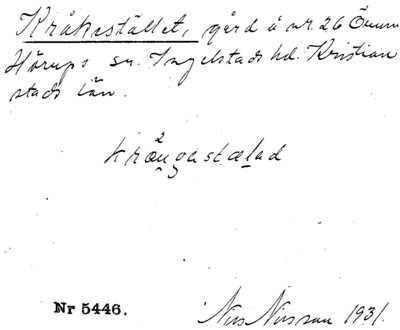 Kråkestället, gård å nr. 26 Örum
Hörups sn. Ingelstads hd. Kristian
stads län.
2
kråugastælad
Nr 5446.
Nils Nilsson 1931.